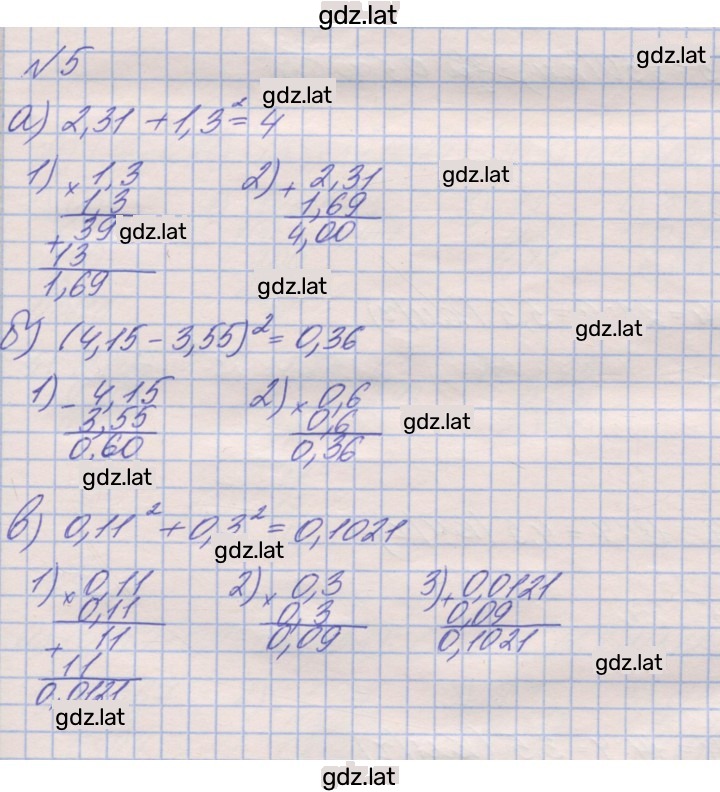 gdz.lat
№5
gdz.lat
gdz.lat
а) 2,31 + 1,3² = 4
1) × 1,3
1,3
39
+ 13
1,69
2) + 2,31
1,69
4,00
gdz.lat
gdz.lat
gdz.lat
gdz.lat
б) (4,15 - 3,55)² = 0,36
1) - 4,15
3,55
0,60
2) × 0,6
0,6
0,36
gdz.lat
gdz.lat
в) 0,11² + 0,3² = 0,1021
gdz.lat
1) × 0,11
0,11
11
+ 11
0,0121
2) × 0,3
0,3
0,09
3) + 0,0121
0,09
0,1021
gdz.lat
gdz.lat
gdz.lat